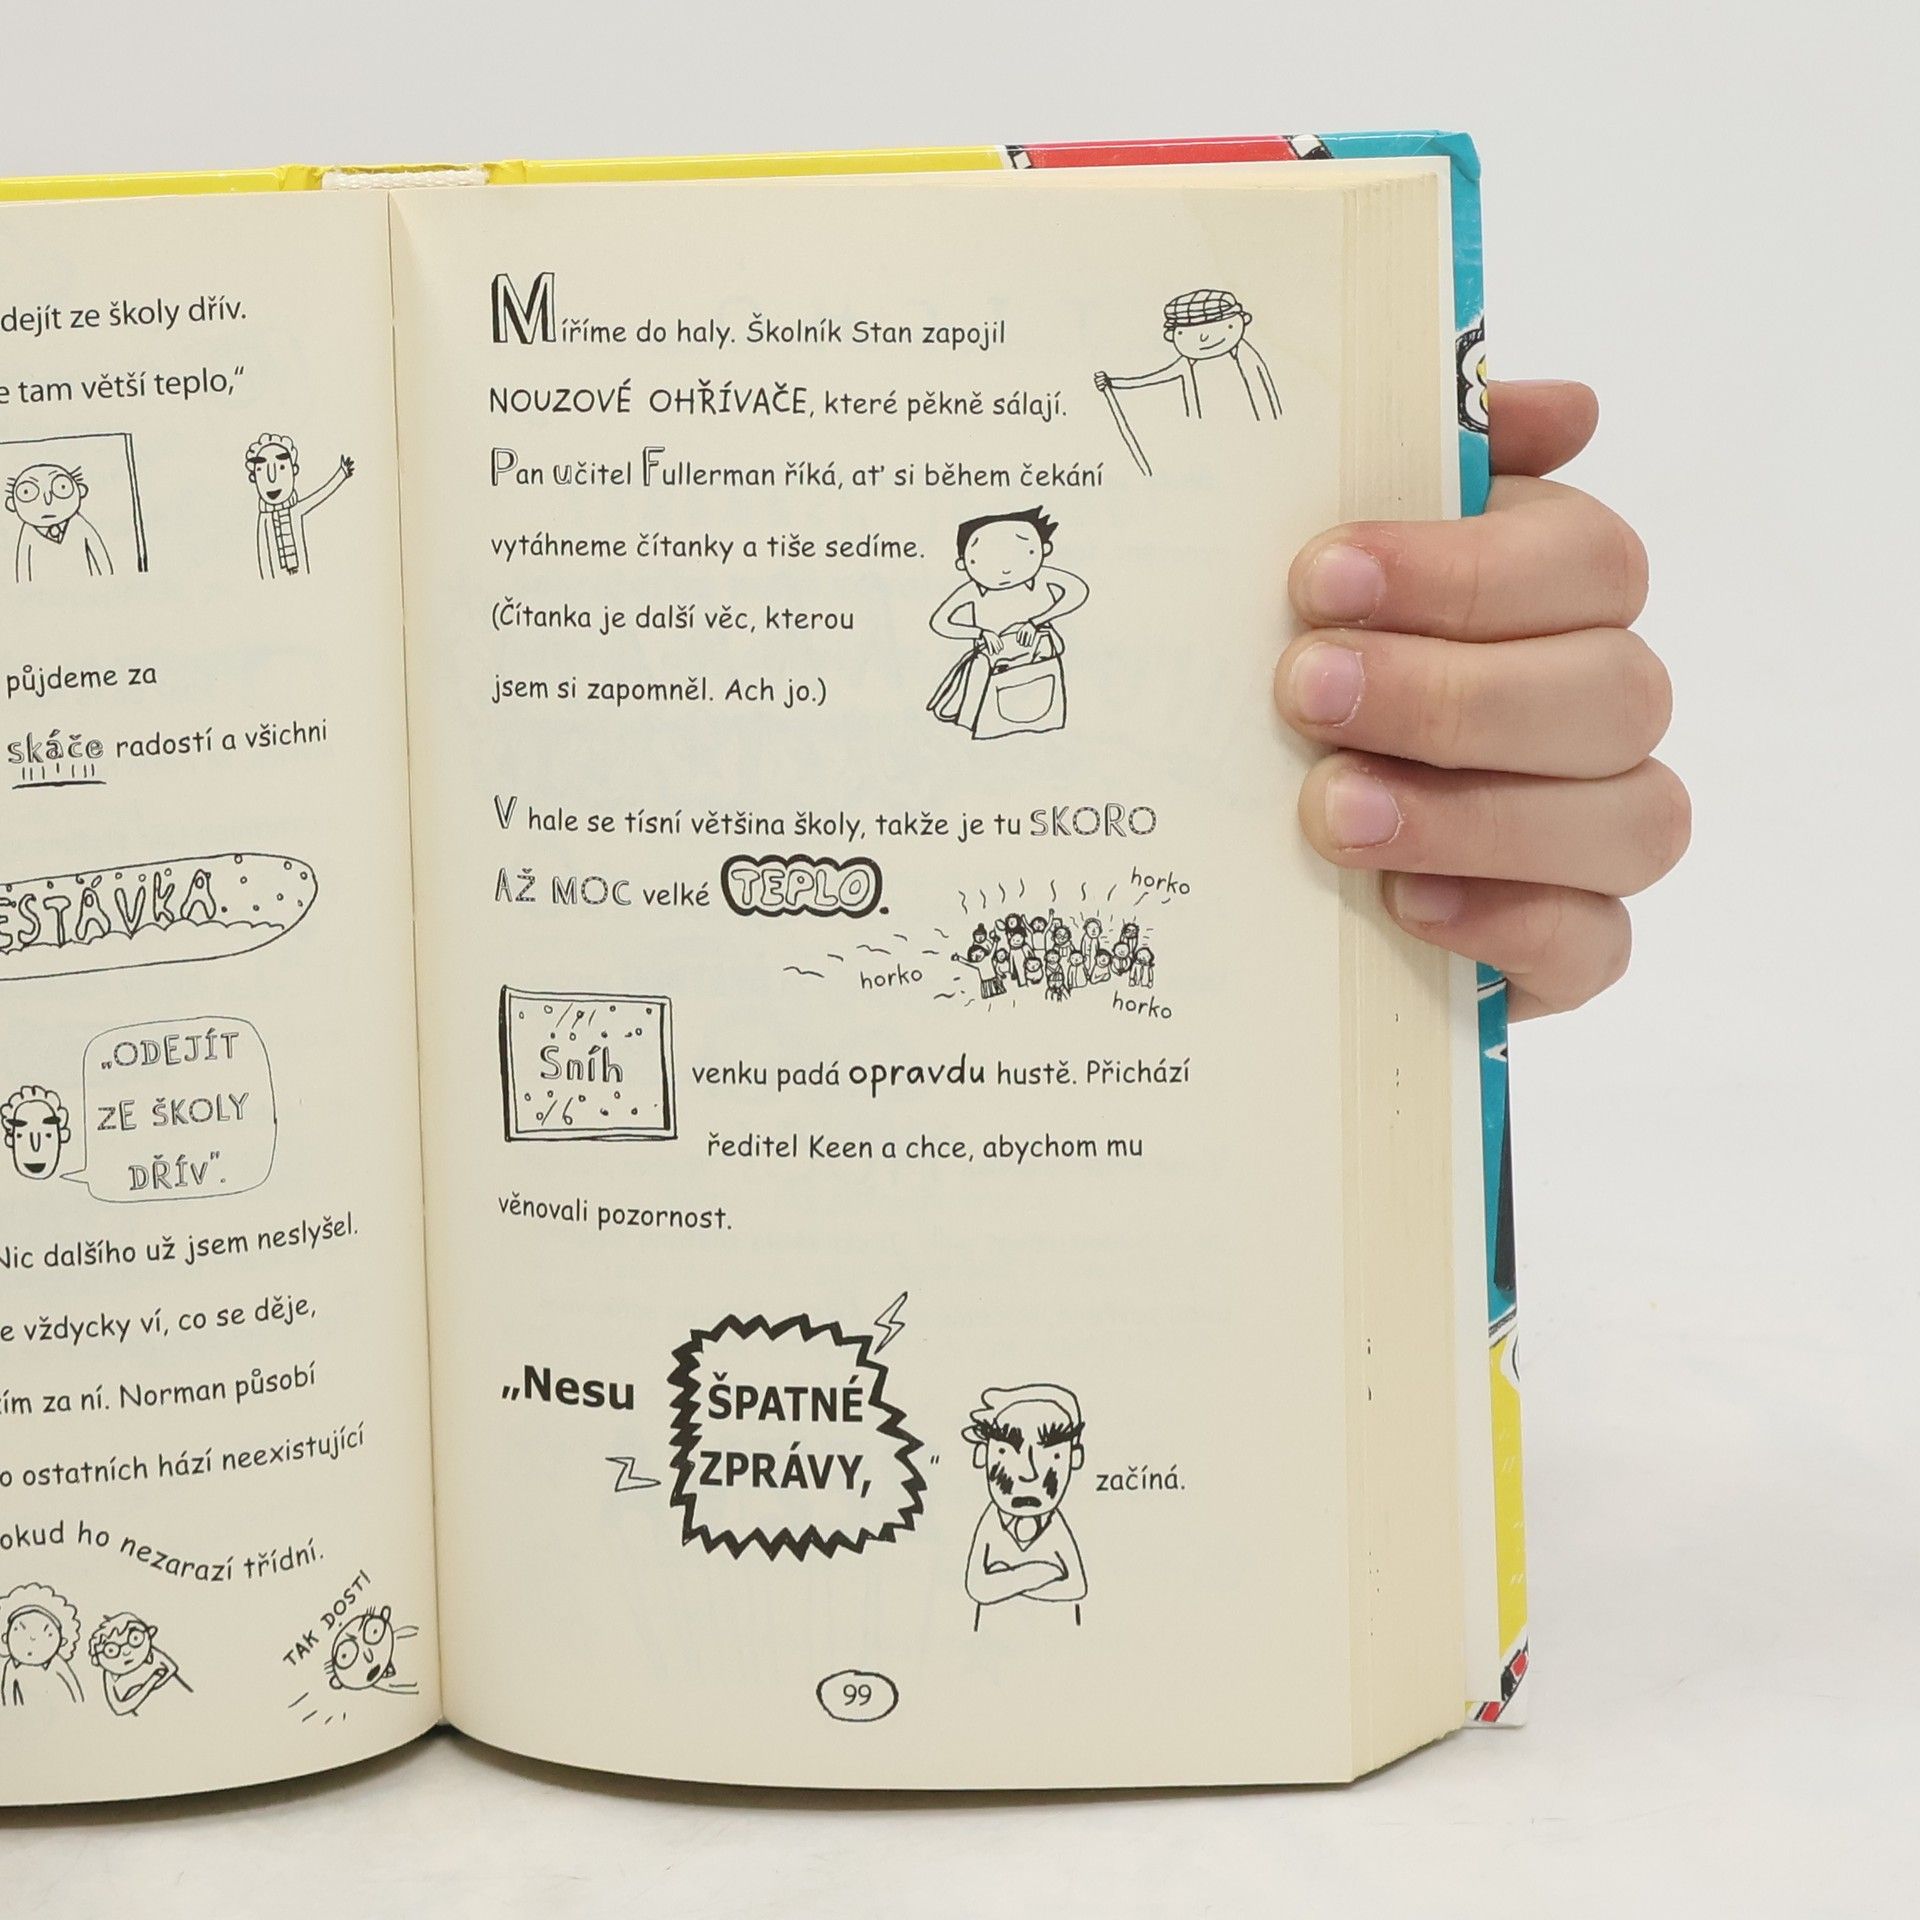 dejít ze školy dřív.
tam větší teplo,“
půjdeme za
skáče radostí a všichni
„ODEJÍT
ZE ŠKOLY
DŘÍV“.
Nic dalšího už jsem neslyšel.
vždycky ví, co se děje,
za ní. Norman působí
ostatních hází neexistující
ho nezarazí třídní.
TAK DOSTI
Míříme do haly. Školník Stan zapojil
NOUZOVÉ OHŘÍVAČE, které pěkně sálají.
Pan učitel Fullerman říká, ať si během čekání
vytáhneme čítanky a tiše sedíme.
(Čítanka je další věc, kterou
jsem si zapomněl. Ach jo.)
V hale se tísní většina školy, takže je tu SKORO
AŽ MOC velké TEPLO.
horko
horko
horko
Sníh
venku padá opravdu hustě. Přichází
ředitel Keen a chce, abychom mu
věnovali pozornost.
„Nesu ŠPATNÉ
ZPRÁVY,“ začíná.
99